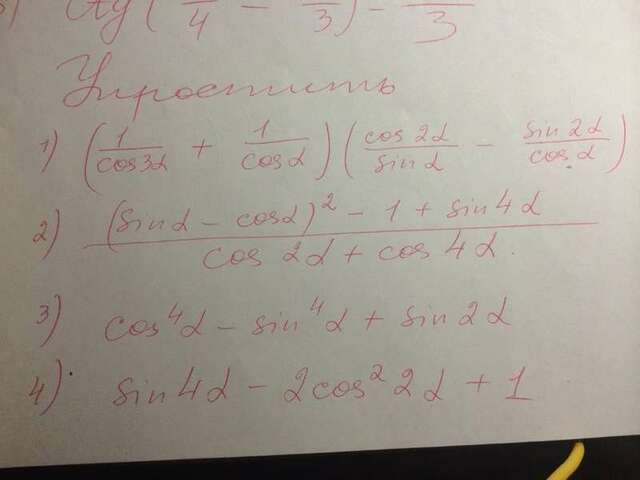 4 - 3) - 3
Упростить
1) (1/cos3α + 1/cosα)(cos2α/sinα - sin2α/cosα)
2) (sinα - cosα)² - 1 + sin4α / cos2α + cos4α
3) cos⁴α - sin⁴α + sin2α
4) sin4α - 2cos²2α + 1